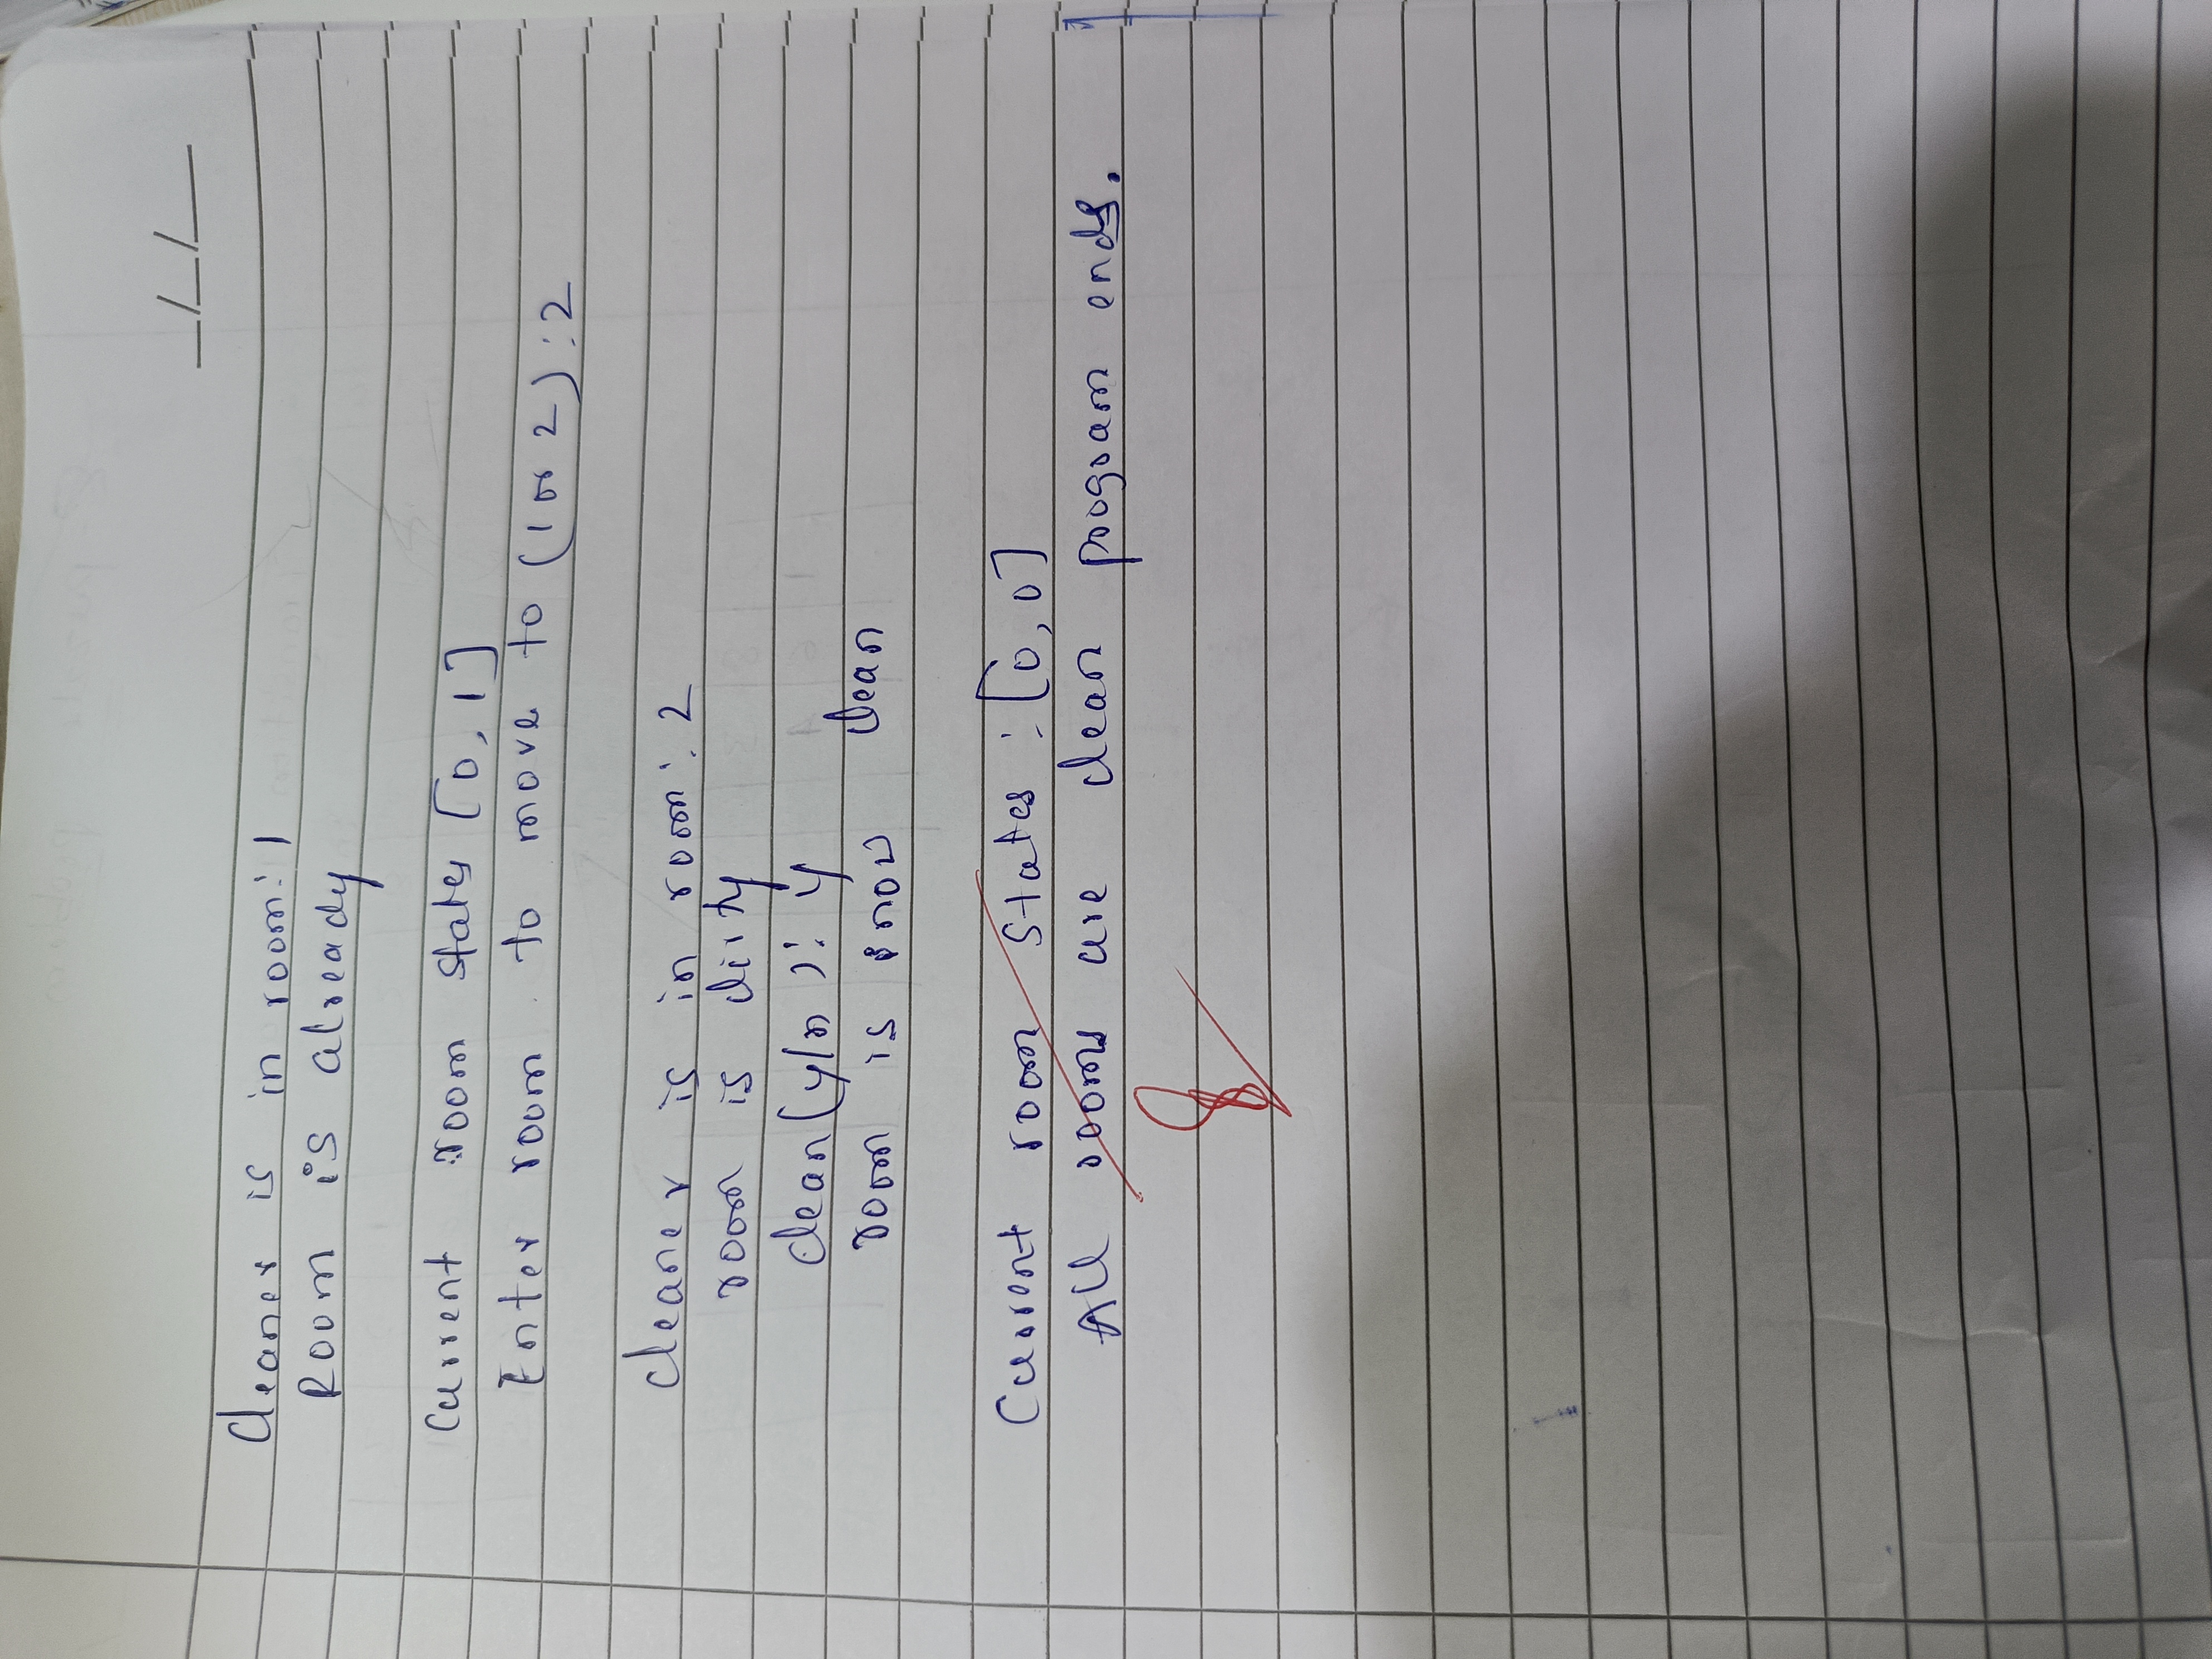 Cleaner is in room: 1
Room is already
Current room states [0, 1]
Enter room to move to (1 or 2) : 2
Cleaner is in room: 2
room is dirty
Clean (y/n): y
room is now clean
Current room States : [0, 0]
All rooms are clean program ends.